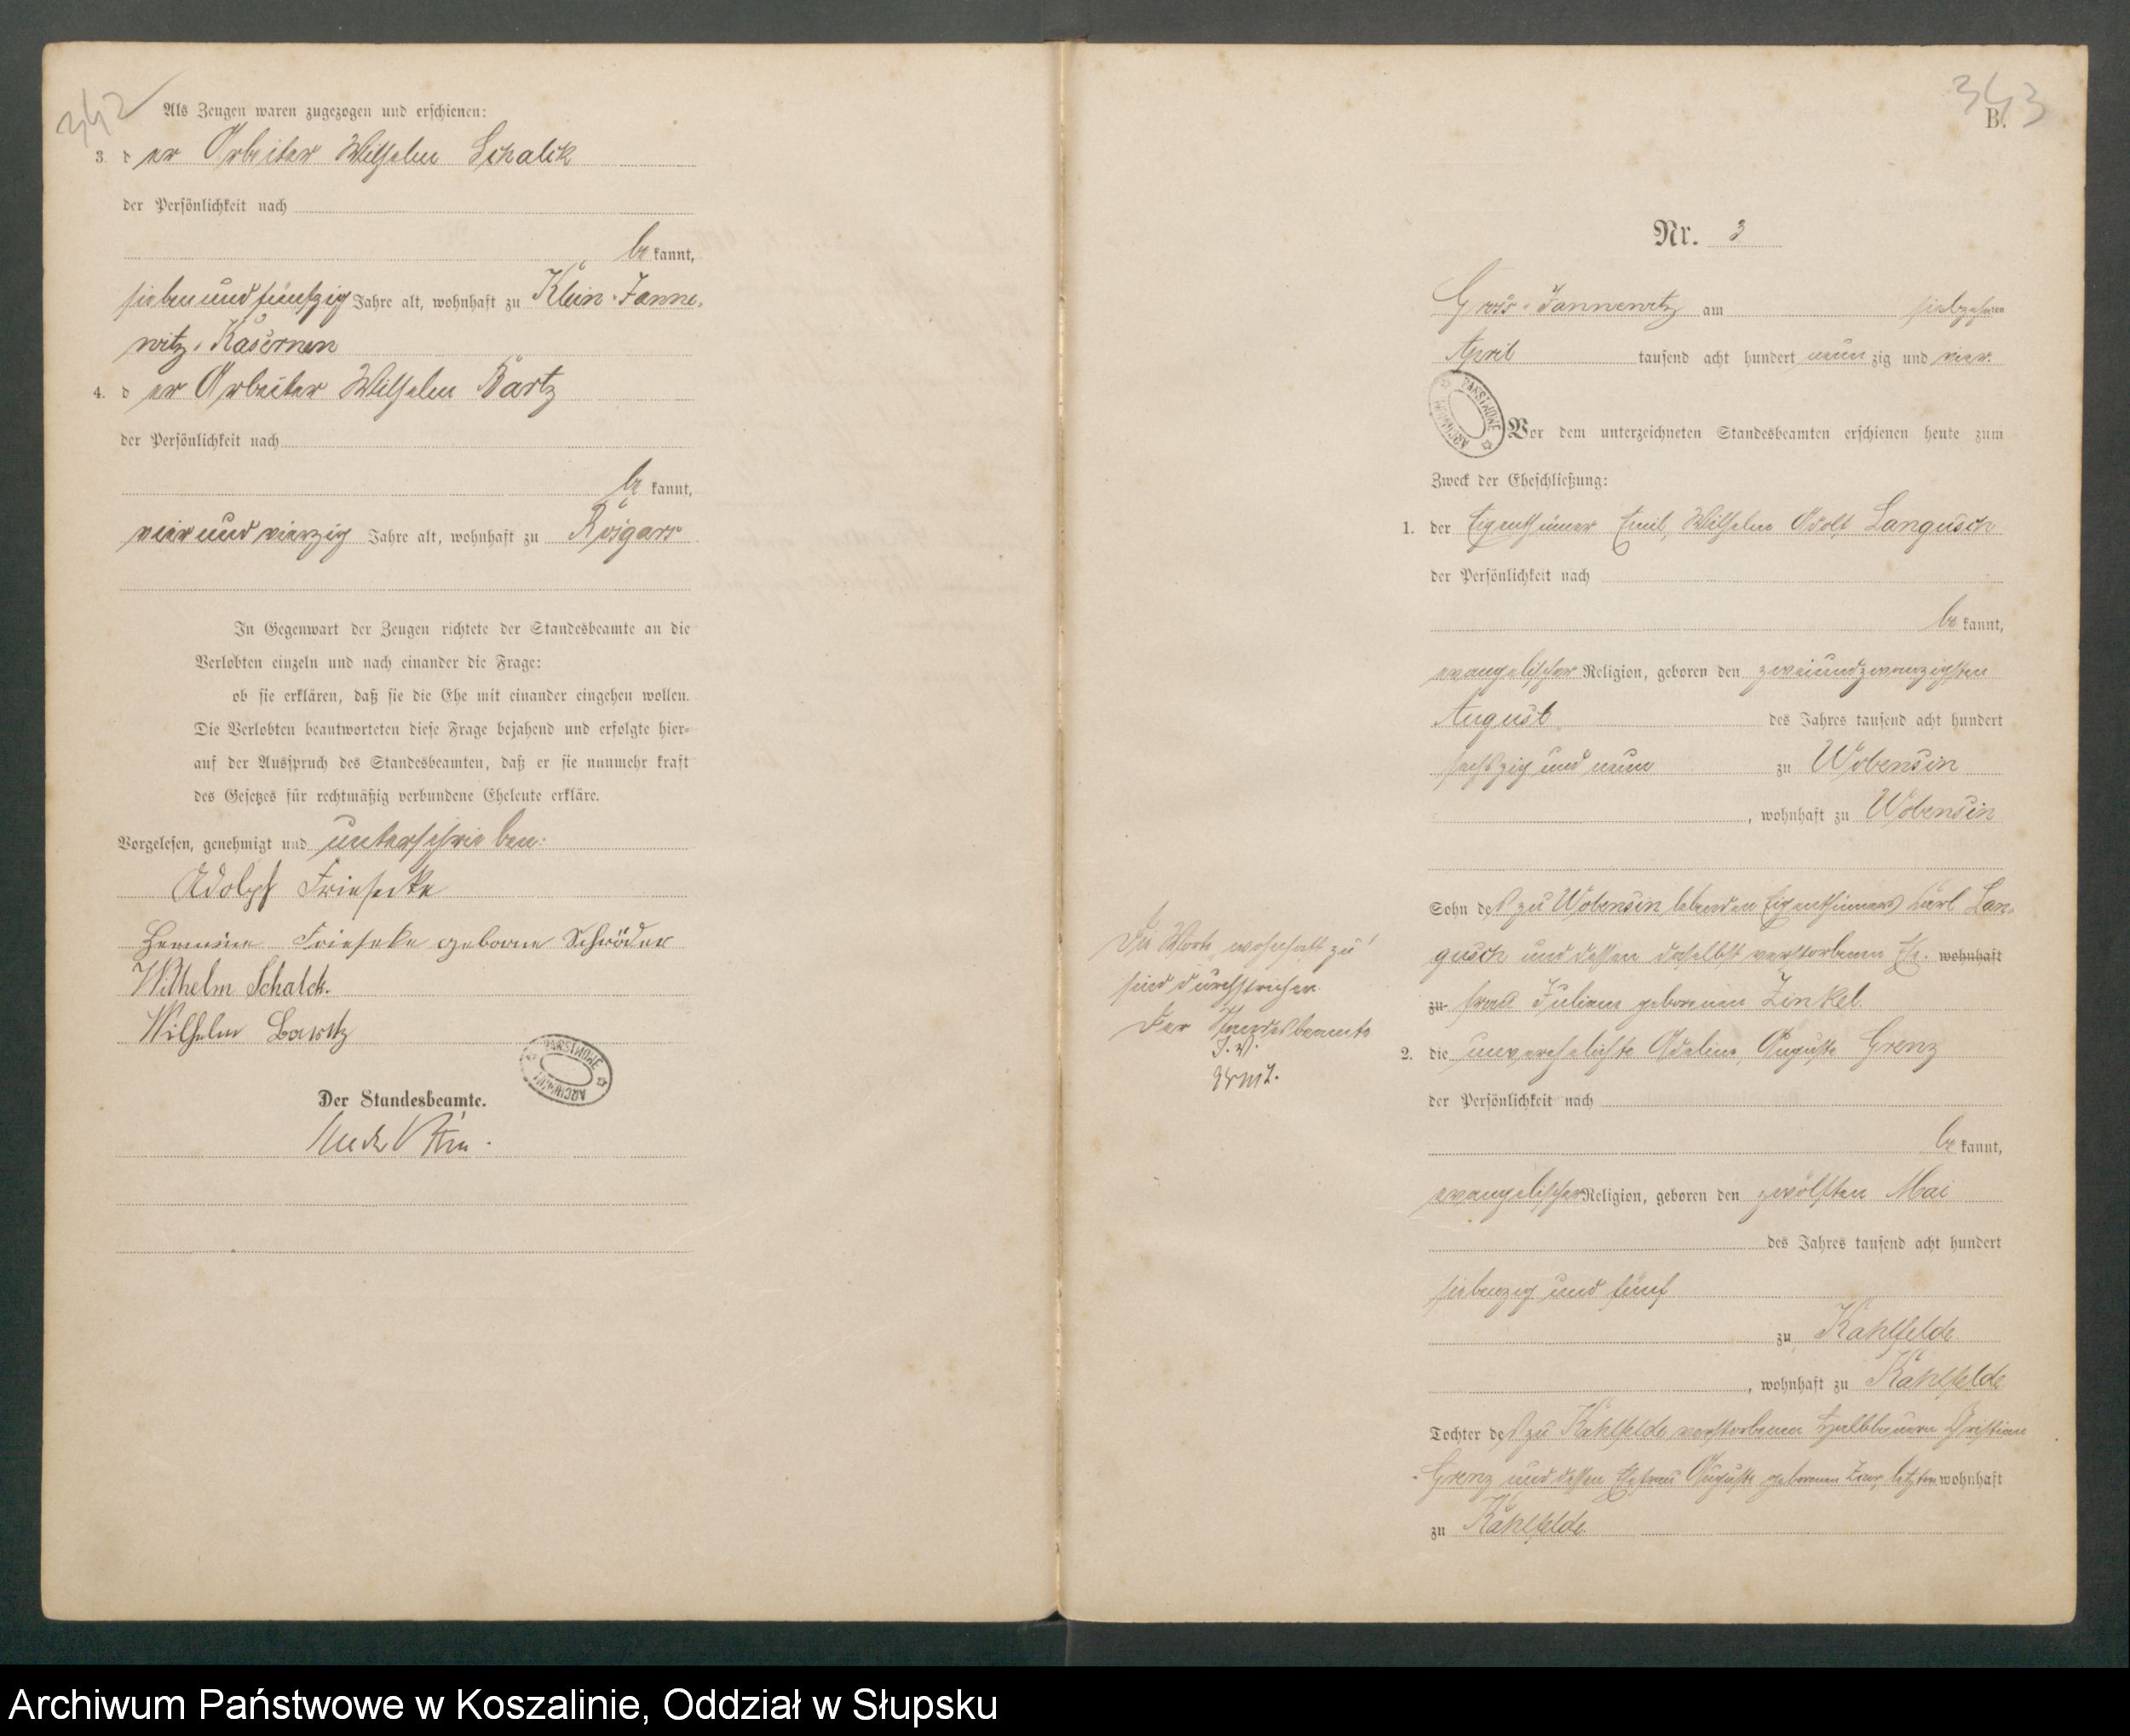 342
Als Zeugen waren zugezogen und erschienen:
3. der Arbeiter Wilhelm Schalck
der Persönlichkeit nach
bekannt,
siebenundfünfzig Jahre alt, wohnhaft zu Klein-Janne-
witz-Kasernen
4. der Arbeiter Wilhelm Bartz
der Persönlichkeit nach
bekannt,
vierundvierzig Jahre alt, wohnhaft zu Rosgars
In Gegenwart der Zeugen richtete der Standesbeamte an die
Verlobten einzeln und nach einander die Frage:
ob sie erklären, daß sie die Ehe mit einander eingehen wollen.
Die Verlobten beantworteten diese Frage bejahend und erfolgte hier-
auf der Ausspruch des Standesbeamten, daß er sie nunmehr kraft
des Gesetzes für rechtmäßig verbundene Eheleute erkläre.
Vorgelesen, genehmigt und unterschrieben:
Adolph Friesecke
Hermine Frieseke geborne Schröder
Wilhelm Schalck.
Wilhelm Bartz
PAŃSTWOWE ARCHIWUM
Der Standesbeamte.
343
B.
Nr. 3
Gross-Jannewitz am siebzehnten
April tausend acht hundert neunzig und vier.
PAŃSTWOWE ARCHIWUM
Vor dem unterzeichneten Standesbeamten erschienen heute zum
Zweck der Eheschließung:
1. der Eigenthümer Emil, Wilhelm Adolf Langusch
der Persönlichkeit nach
bekannt,
evangelischer Religion, geboren den zweiundzwanzigsten
August des Jahres tausend acht hundert
sechszig und neun zu Wobensin
, wohnhaft zu Wobensin
Sohn des zu Wobensin lebenden Eigenthümers Carl Lan-
gusch und dessen daselbst verstorbenen Eh- wohnhaft
zu frau Juliane geborenen Zinkel.
Die Worte "wohnhaft zu"
sind durchstrichen.
Der Standesbeamte
J. V.
2. die unverehelichte Adeline, Auguste Grenz
der Persönlichkeit nach
bekannt,
evangelischer Religion, geboren den zwölften Mai
des Jahres tausend acht hundert
siebenzig und fünf
zu Kahlfelde
, wohnhaft zu Kahlfelde
Tochter des zu Kahlfelde verstorbenen Halbbauern Christian
Grenz und dessen Ehefrau Auguste geborenen wohnhaft
zu Kahlfelde.
Archiwum Państwowe w Koszalinie, Oddział w Słupsku